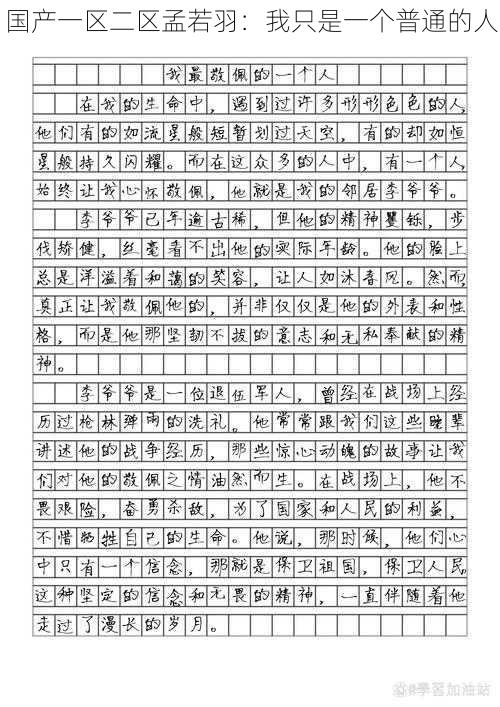 国产一区二区孟若羽：我只是一个普通的人
我最敬佩的一个人
在我的生命中，遇到过许多形形色色的人，
他们有的如流星般短暂划过天空，有的却如恒
星般持久闪耀。而在这众多的人中，有一个人，
始终让我心怀敬佩，他就是我的邻居李爷爷。
李爷爷已年逾古稀，但他的精神矍铄，步
伐矫健，丝毫看不出他的实际年龄。他的脸上
总是洋溢着和蔼的笑容，让人如沐春风。然而，
真正让我敬佩他的，并非仅仅是他的外表和性
格，而是他那坚韧不拔的意志和无私奉献的精
神。
李爷爷是一位退伍军人，曾经在战场上经
历过枪林弹雨的洗礼。他常常跟我们这些晚辈
讲述他的战争经历，那些惊心动魄的故事让我
们对他的敬佩之情油然而生。在战场上，他不
畏艰险，奋勇杀敌，为了国家和人民的利益，
不惜牺牲自己的生命。他说，那时候，他们心
中只有一个信念，那就是保卫祖国，保卫人民。
这种坚定的信念和无畏的精神，一直伴随着他
走过了漫长的岁月。
學習加油站